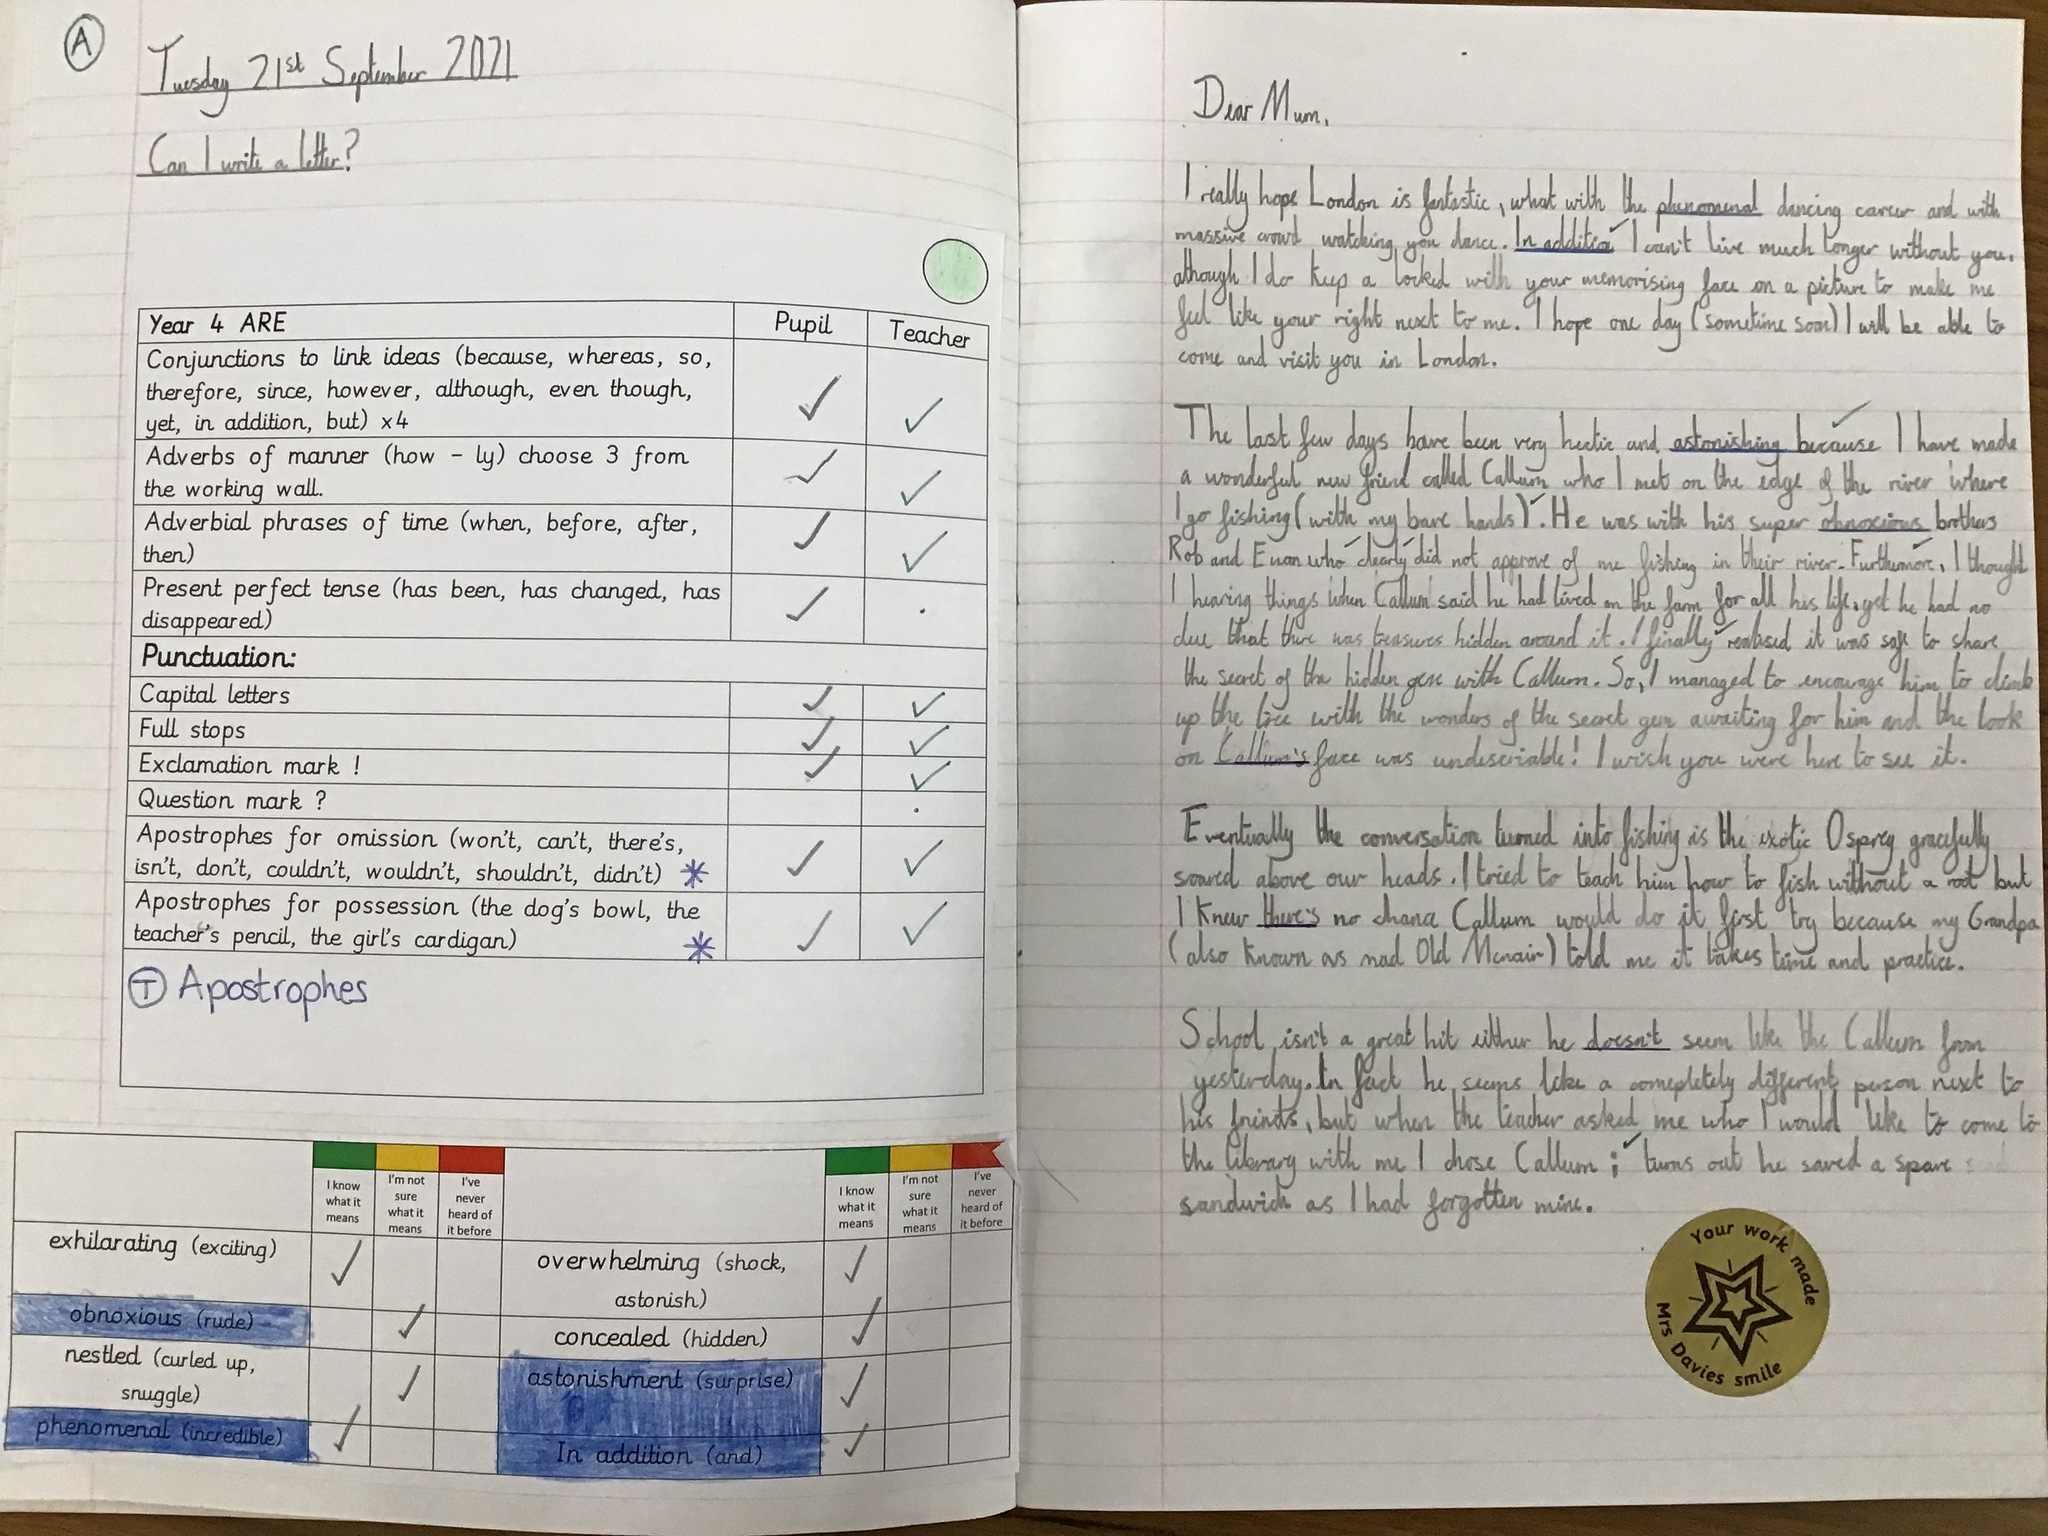 A
Tuesday 21st September 2021
Can I write a letter?
Year 4 ARE Pupil Teacher
Conjunctions to link ideas (because, whereas, so,
therefore, since, however, although, even though,
yet, in addition, but) x4
Adverbs of manner (how – ly) choose 3 from
the working wall.
Adverbial phrases of time (when, before, after,
then)
Present perfect tense (has been, has changed, has
disappeared)
Punctuation:
Capital letters
Full stops
Exclamation mark !
Question mark ?
Apostrophes for omission (won't, can't, there's,
isn't, don't, couldn't, wouldn't, shouldn't, didn't) *
Apostrophes for possession (the dog's bowl, the
teacher's pencil, the girl's cardigan) *
T Apostrophes
I know what it means
I'm not sure what it means
I've never heard of it before
I know what it means
I'm not sure what it means
I've never heard of it before
exhilarating (exciting)
obnoxious (rude)
nestled (curled up,
snuggle)
phenomenal (incredible)
overwhelming (shock,
astonish)
concealed (hidden)
astonishment (surprise)
In addition (and)
Dear Mum,
I really hope London is fantastic, what with the phenomenal dancing career and with
massive crowd watching you dance. In addition I can't live much longer without you,
although I do keep a locked with your memorising face on a picture to make me
feel like your right next to me. I hope one day (sometime soon) I will be able to
come and visit you in London.
The last few days have been very hectic and astonishing because I have made
a wonderful new friend called Callum who I met on the edge of the river where
I go fishing (with my bare hands). He was with his super obnoxious brothers
Rob and Euan who clearly did not approve of me fishing in their river. Furthermore, I thought
I hearing things when Callum said he had lived on the farm for all his life, yet he had no
clue that there was treasures hidden around it. I finally realised it was safe to share
the secret of the hidden gem with Callum. So, I managed to encourage him to climb
up the tree with the wonders of the secret gem awaiting for him and the look
on Callum's face was undescriable! I wish you were here to see it.
Eventually the conversation turned into fishing is the exotic Osprey gracefully
soared above our heads. I tried to teach him how to fish without a but
I knew there's no chance Callum would do it first try because my Grandpa
(also known as mad Old Mcnair) told me it takes time and practice.
School isn't a great hit either he doesn't seem like the Callum from
yesterday. In fact he seems like a completely different person next to
his friends, but when the teacher asked me who I would like to come to
the library with me I chose Callum ; turns out he saved a spare
sandwich as I had forgotten mine.
Your work made
Mrs Davies smile